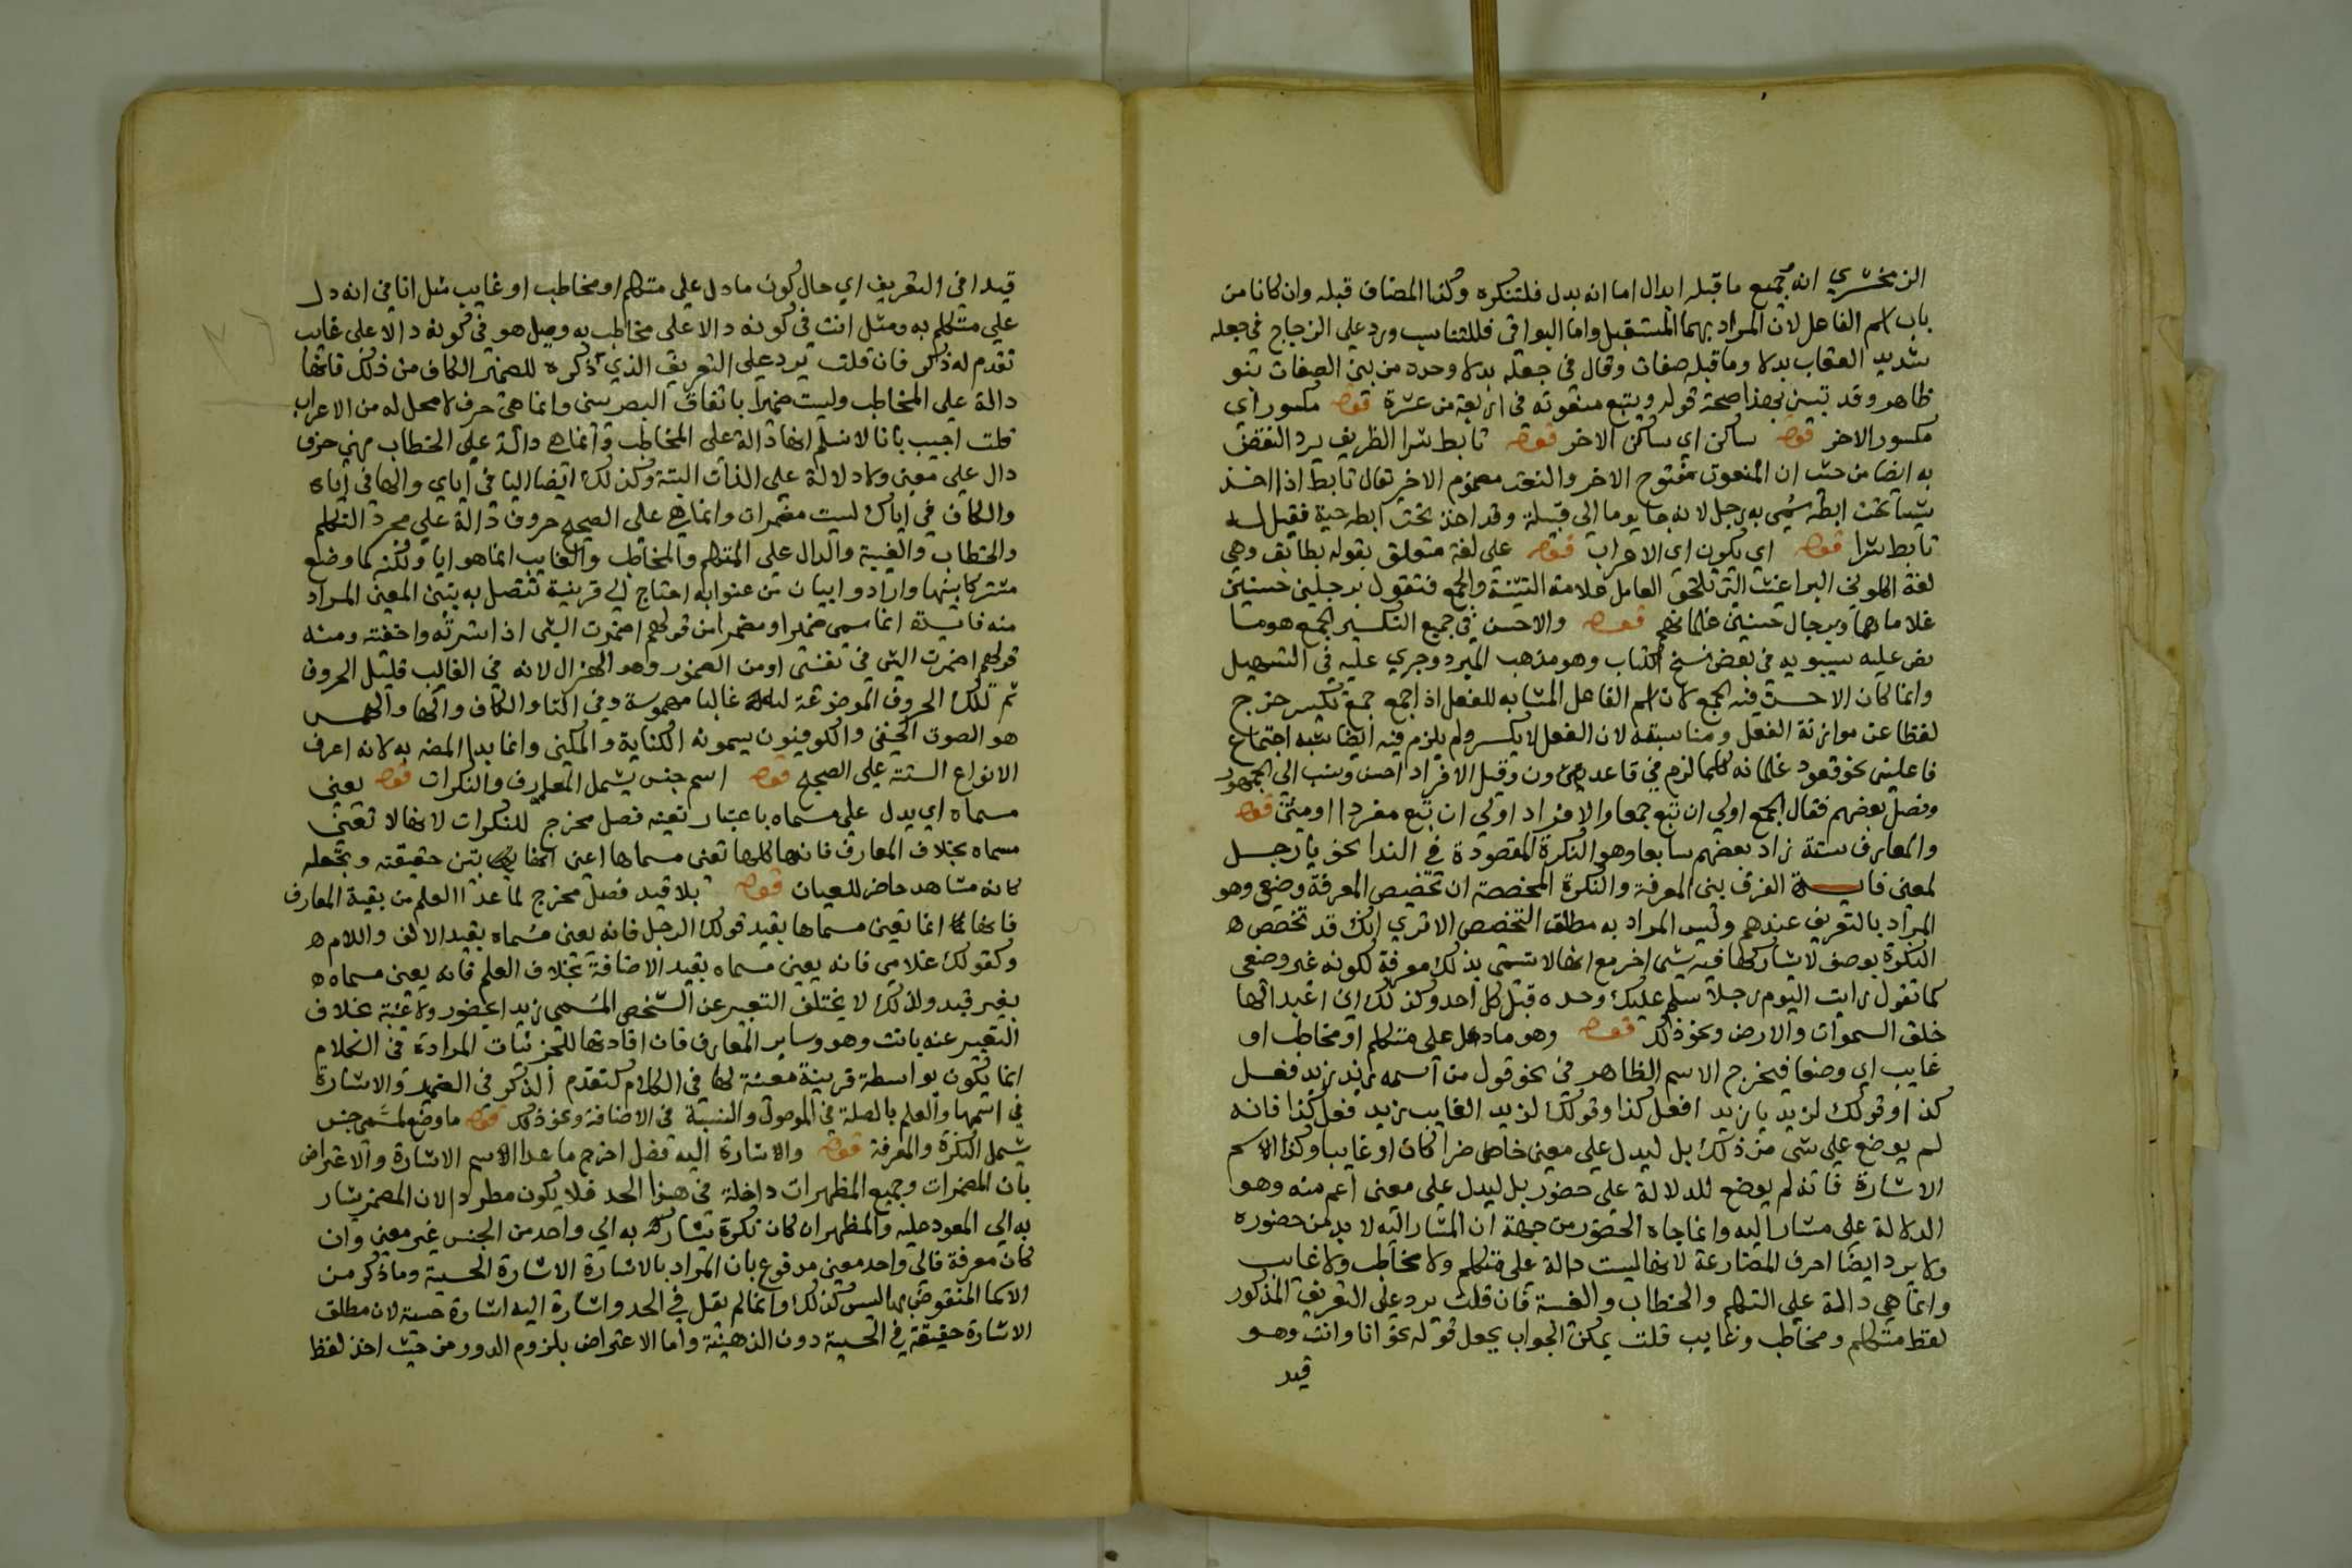 الزمخشري انه جميع ما قبله ابدال اما انه بدل فلتنكره وكذا المضاف قبله وان كانا من
باب اسم الفاعل لان المراد بهما المستقبل واما البواقي فللتناسب ورد على الزجاج في جعله
شديد العقاب بدلا وما قبله صفات وقال في جعله بدلا وحده من بين الصفات نبو
ظاهر وقد تبين بهذا صحة قوله ويتبع منعوته في اربعة من عشرة قوله مكسور اي
مكسور الاخر قوله ساكن اي ساكن الاخر قوله تابط شرا الظريف يرد النقض
به ايضا من حيث ان المنعوت مفتوح الاخر والنعت مضموم الاخر يقال تابط اذا اخذ
شيا تحت ابطه سمي به رجل لانه جا يوما الى قبيلة وقد اخذ تحت ابطه حية فقيل له
تابط شرا قوله اي يكون اي الاعراب قوله على لغة متعلق بقوله يطابق وهي
لغة اكلوني البراغيث التي تلحق العامل علامة التثنية والجمع فتقول برجلين حسنين
غلاماهما وبرجال حسنين غلمانهم قوله والاحسن في جميع التكسير الجمع هو ما
نص عليه سيبويه في بعض نسخ الكتاب وهو مذهب المبرد وجري عليه في التسهيل
وانما كان الاحسن فيه الجمع لان اسم الفاعل المشابه للفعل اذا جمع جمع تكسير خرج
لفظا عن موازنة الفعل ومناسبته لان الفعل لا يكسر ولم يلزم فيه ايضا شبه اجتماع
فاعلين نحو قعود غلمانه كما لزم في قاعدون وقيل الافراد احسن ونسب الى الجمهور
وفصل بعضهم فقال الجمع اولي ان تبع جمعا والافراد اولي ان تبع مفردا او مثنى قوله
والمعارف ستة زاد بعضهم سابعا وهو النكرة المقصودة في الندا نحو يا رجل
لمعين فايدة الفرق بين المعرفة والنكرة المخصصة ان تخصيص المعرفة وضعي وهو
المراد بالتعريف عندهم وليس المراد به مطلق التخصص الا تري انك قد تخصص
النكرة بوصف لا يشاركها فيه شي اخر مع انها لا تسمى بذلك معرفة لكونه غير وضعي
كما تقول رايت اليوم رجلا سلم عليك وحده قبل كل احد وكذلك اني اعبد الها
خلق السموات والارض ونحو ذلك قوله وهو ما دل على متكلم او مخاطب او
غايب اي وضعا فيخرج الاسم الظاهر في نحو قول من اسمه زيد زيد فعل
كذا وقولك لزيد يا زيد افعل كذا وقولك لزيد الغايب زيد فعل كذا فانه
لم يوضع على شي من ذلك بل ليدل على معين حاضرا كان او غايبا وكذا الاسم
الاشارة فانه لم يوضع للدلالة على حضور بل ليدل على معنى اعم منه وهو
الدلالة على مشار اليه وانما جاه الحضور من جهة ان المشار اليه لا بد من حضوره
ولا يرد ايضا احرف المضارعة لانها ليست دالة على متكلم ولا مخاطب ولا غايب
وانما هي دالة على التكلم والخطاب والغيبة فان قلت يرد على التعريف المذكور
لفظ متكلم ومخاطب وغايب قلت يمكن الجواب بجعل قوله نحو انا وانت وهو
قيد
قيدا في التعريف اي حال كون ما دل على متكلم او مخاطب او غايب مثل انا في انه دل
على متكلم به ومثل انت في كونه دالا على مخاطب به ومثل هو في كونه دالا على غايب
تقدم له ذكر فان قلت يرد على التعريف الذي ذكره للضمير الكاف من ذلك فانها
دالة على المخاطب وليست ضميرا باتفاق البصريين وانما هي حرف لا محل له من الاعراب
قلت اجيب بانا لا نسلم انها دالة على المخاطب وانما هي دالة على الخطاب فهي حرف
دال على معنى ولا دلالة على الذات البتة وكذلك ايضا اليا في اياي والها في اياه
والكاف في اياك ليست مضمرات وانما هي على الصحيح حروف دالة على مجرد التكلم
والخطاب والغيبة والدال على المتكلم والمخاطب والغايب انما هو ايا ولكنه لما وضع
مشتركا بينها وارادوا بيان من عنوا به احتاج الى قرينة تتصل به تبين المعنى المراد
منه فايدة انما سمي ضميرا او مضمرا من قولهم اضمرت الشي اذا سترته واخفته ومنه
قولهم اضمرت الشي في نفسي او من الضمور وهو الهزال لانه في الغالب قليل الحروف
ثم تلك الحروف الموضوعة له غالبا مهموسة وهي التا والكاف والها والهمس
هو الصوت الخفي والكوفيون يسمونه الكناية والمكني وانما بدا المصنف به لانه اعرف
الانواع الستة على الصحيح قوله اسم جنس يشمل المعارف والنكرات قوله يعين
مسماه اي يدل على مسماه باعتبار تعينه فصل مخرج للنكرات لانها لا تعين
مسماه بخلاف المعارف فانها كلها تعين مسماها اعني انها تبين حقيقته وتجعله
كانه مشاهد حاضر للعيان قوله بلا قيد فصل مخرج لما عدا العلم من بقية المعارف
فانها انما تعين مسماها بقيد قولك الرجل فانه يعين مسماه بقيد الالف واللام
وكقولك غلامي فانه يعين مسماه بقيد الاضافة بخلاف العلم فانه يعين مسماه
بغير قيد ولذلك لا يختلف التعبير عن الشخص المسمى زيدا بحضور ولا غيبة بخلاف
التعبير عنه بانت وهو وساير المعارف فان افادتها للجزئيات المرادة في الكلام
انما يكون بواسطة قرينة معينة لها في الكلام كتقدم الذكر في الضمير والاشارة
في اسمها والعلم بالصلة في الموصول والنسبة في الاضافة ونحو ذلك قوله ما وضع لمسمى جنس
يشمل النكرة والمعرفة قوله والاشارة اليه فصل اخرج ما عدا الاسم الاشارة والاعتراض
بان المضمرات وجميع المظهرات داخلة في هذا الحد فلا يكون مطردا لان المضمر يشار
به الى المعود عليه والمظهر ان كان نكرة يشار به الى واحد من الجنس غير معين وان
كان معرفة فالى واحد معين مدفوع بان المراد بالاشارة الاشارة الحسية وما ذكر من
الاسما المنقوض بها ليس كذلك وانما لم يقل في الحد واشارة اليه اشارة حسية لان مطلق
الاشارة حقيقة في الحسية دون الذهنية واما الاعتراض بلزوم الدور من حيث اخذ لفظ